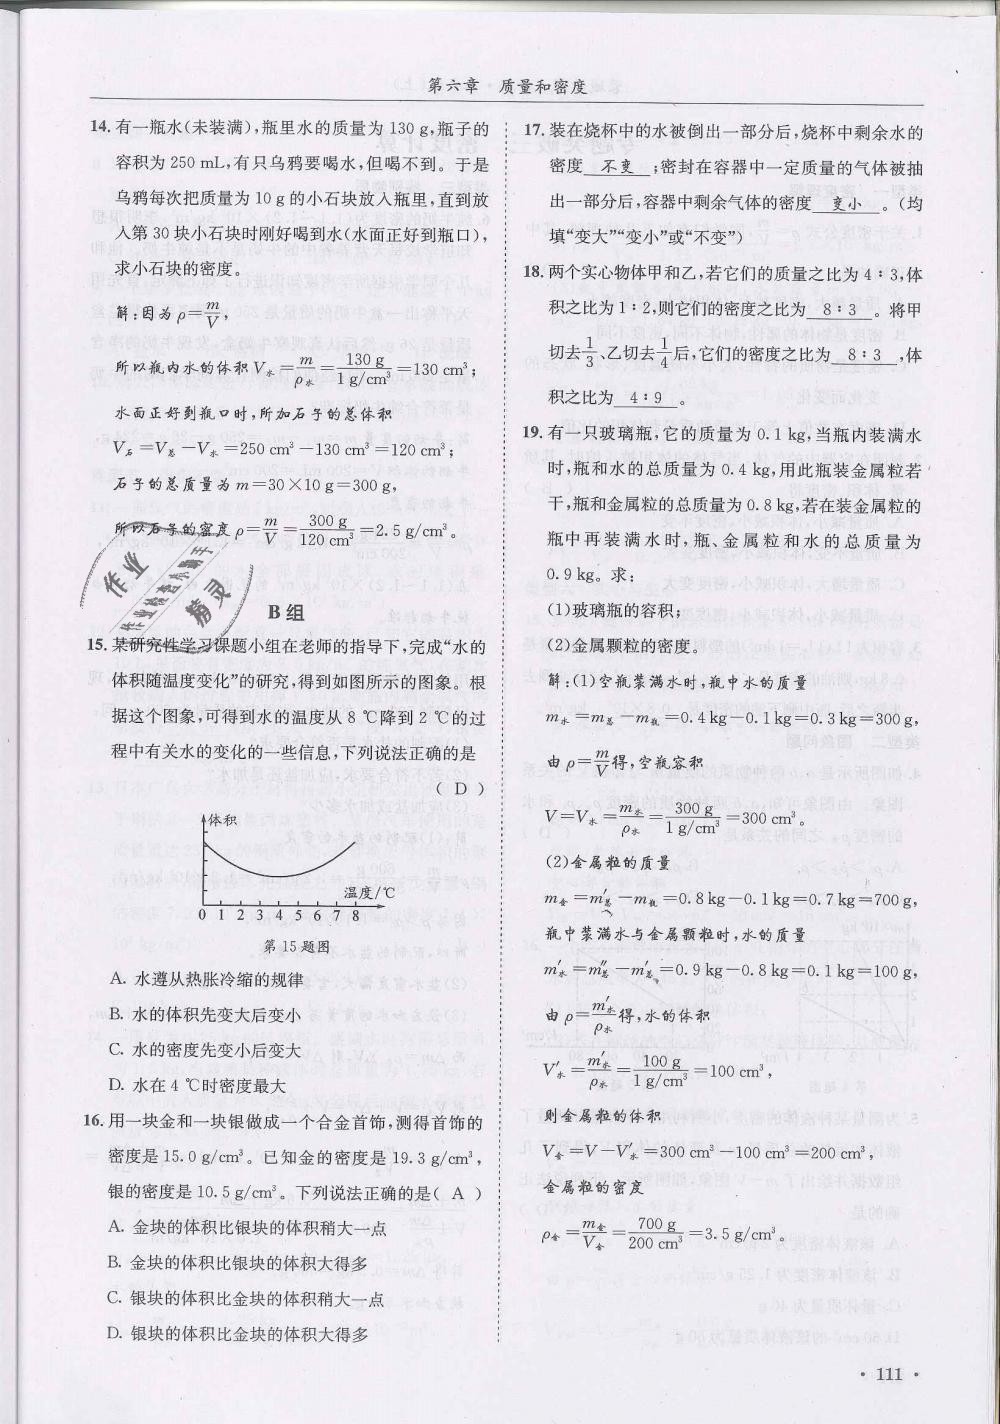 第六章 质量和密度
14. 有一瓶水(未装满),瓶里水的质量为 130 g,瓶子的
容积为 250 mL,有只乌鸦要喝水,但喝不到。于是
乌鸦每次把质量为 10 g 的小石块放入瓶里,直到放
入第 30 块小石块时刚好喝到水(水面正好到瓶口),
求小石块的密度。
解:因为ρ=m/V,
所以瓶内水的体积V水=m/ρ水=130 g/1 g/cm³=130 cm³;
水面正好到瓶口时,所加石子的总体积
V石=V总-V水=250 cm³-130 cm³=120 cm³;
石子的总质量为m=30×10 g=300 g,
所以石子的密度ρ=m/V=300 g/120 cm³=2.5 g/cm³。
作业
精灵
B 组
15. 某研究性学习课题小组在老师的指导下,完成“水的
体积随温度变化”的研究,得到如图所示的图象。根
据这个图象,可得到水的温度从 8 ℃降到 2 ℃的过
程中有关水的变化的一些信息,下列说法正确的是
( D )
体积
温度/℃
0 1 2 3 4 5 6 7 8
第 15 题图
A. 水遵从热胀冷缩的规律
B. 水的体积先变大后变小
C. 水的密度先变小后变大
D. 水在 4 ℃时密度最大
16. 用一块金和一块银做成一个合金首饰,测得首饰的
密度是 15.0 g/cm³。已知金的密度是 19.3 g/cm³,
银的密度是 10.5 g/cm³。下列说法正确的是( A )
A. 金块的体积比银块的体积稍大一点
B. 金块的体积比银块的体积大得多
C. 银块的体积比金块的体积稍大一点
D. 银块的体积比金块的体积大得多
17. 装在烧杯中的水被倒出一部分后,烧杯中剩余水的
密度 不变 ;密封在容器中一定质量的气体被抽
出一部分后,容器中剩余气体的密度 变小 。(均
填“变大”“变小”或“不变”)
18. 两个实心物体甲和乙,若它们的质量之比为 4∶3,体
积之比为 1∶2,则它们的密度之比为 8∶3 。将甲
切去1/3、乙切去1/4后,它们的密度之比为 8∶3 ,体
积之比为 4∶9 。
19. 有一只玻璃瓶,它的质量为 0.1 kg,当瓶内装满水
时,瓶和水的总质量为 0.4 kg,用此瓶装金属粒若
干,瓶和金属粒的总质量为 0.8 kg,若在装金属粒的
瓶中再装满水时,瓶、金属粒和水的总质量为
0.9 kg。求:
(1)玻璃瓶的容积;
(2)金属颗粒的密度。
解:(1)空瓶装满水时,瓶中水的质量
m水=m总-m瓶=0.4 kg-0.1 kg=0.3 kg=300 g,
由ρ=m/V得,空瓶容积
V=V水=m水/ρ水=300 g/1 g/cm³=300 cm³。
(2)金属粒的质量
m金=m总-m瓶=0.8 kg-0.1 kg=0.7 kg=700 g,
瓶中装满水与金属颗粒时,水的质量
m′水=m″总-m′总=0.9 kg-0.8 kg=0.1 kg=100 g,
由ρ=m′水/ρ水得,水的体积
V′水=m′水/ρ水=100 g/1 g/cm³=100 cm³,
则金属粒的体积
V金=V-V′水=300 cm³-100 cm³=200 cm³,
金属粒的密度
ρ金=m金/V金=700 g/200 cm³=3.5 g/cm³。
· 111 ·